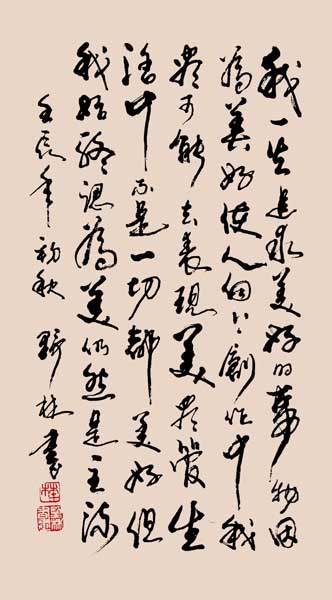 我一生追求美好的事物因
為美好使人向上創作中我
盡可能去表現美盡管生
活中不是一切都美好但
我始終認為美仍然是主流
壬辰年初秋 林書